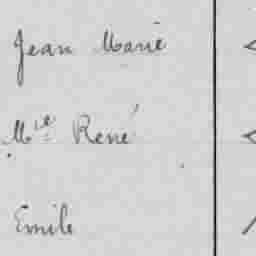 Jean Marie
Mie René
Emile